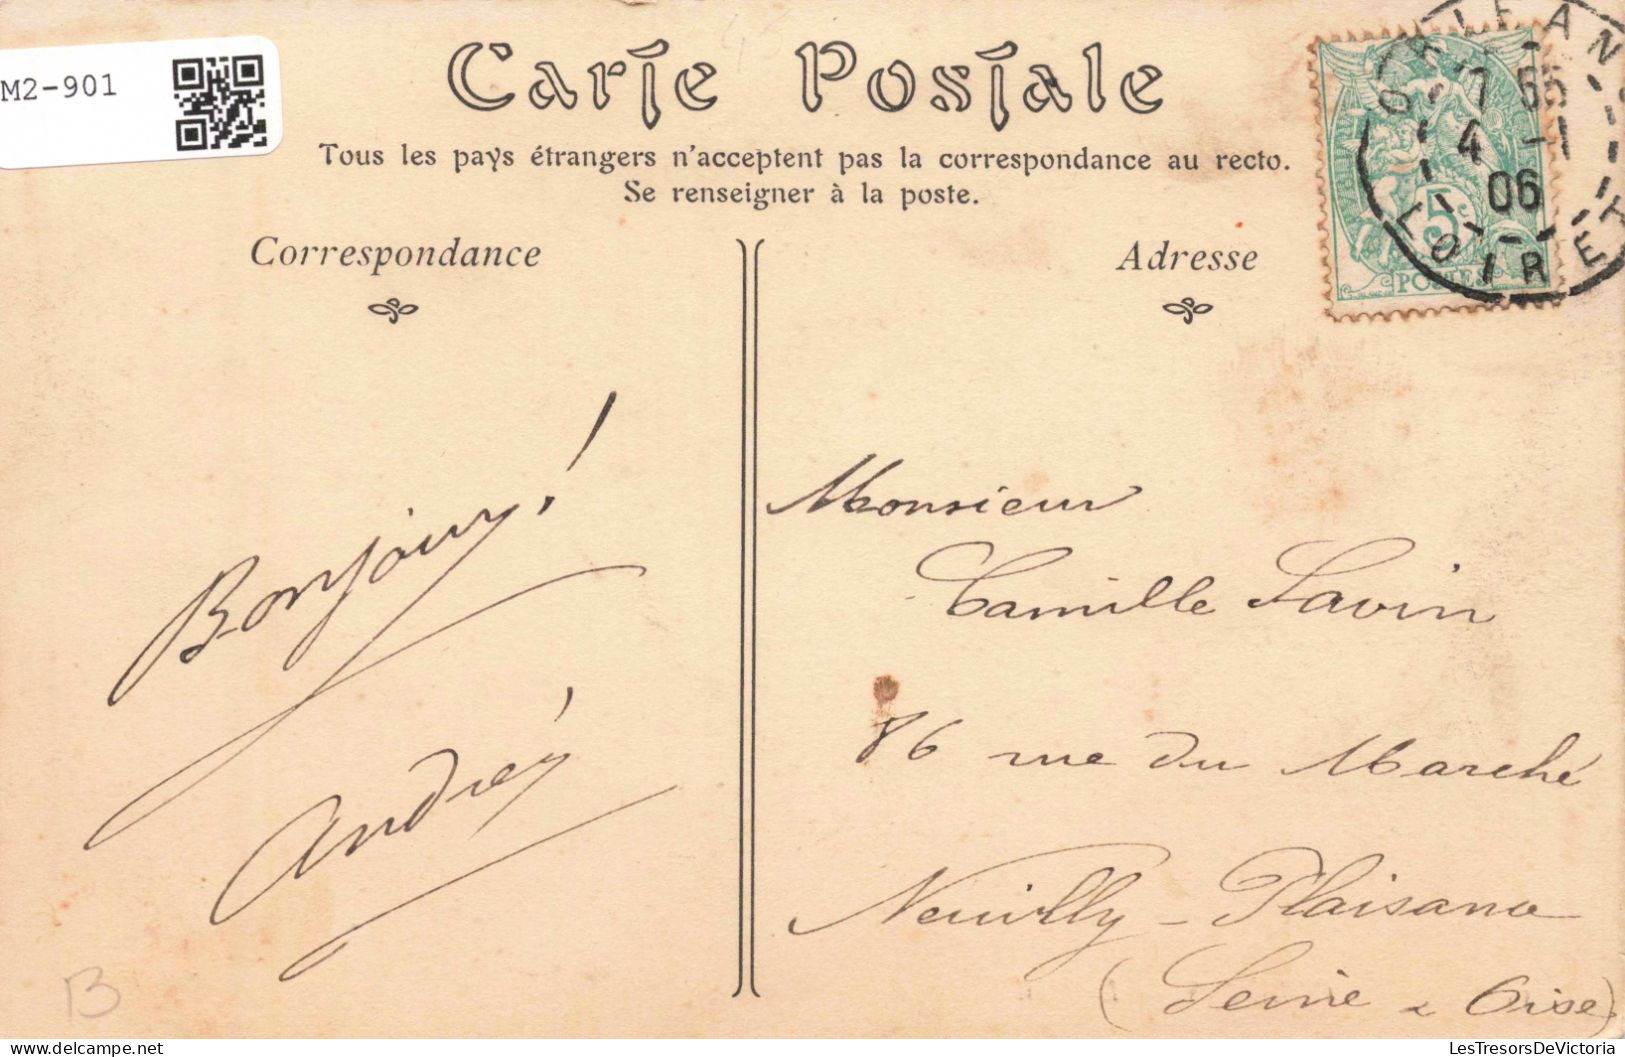 M2-901
Carte Postale
Tous les pays étrangers n'acceptent pas la correspondance au recto.
Se renseigner à la poste.
Correspondance
Adresse
ORLEANS
7 55
4 -1
06
LOIRET
5c
POSTES
Bonjour!
André
Monsieur
Camille Lavin
86 rue du Marché
Neuilly-Plaisance
(Seine & Oise)
B
LesTresorsDeVictoria